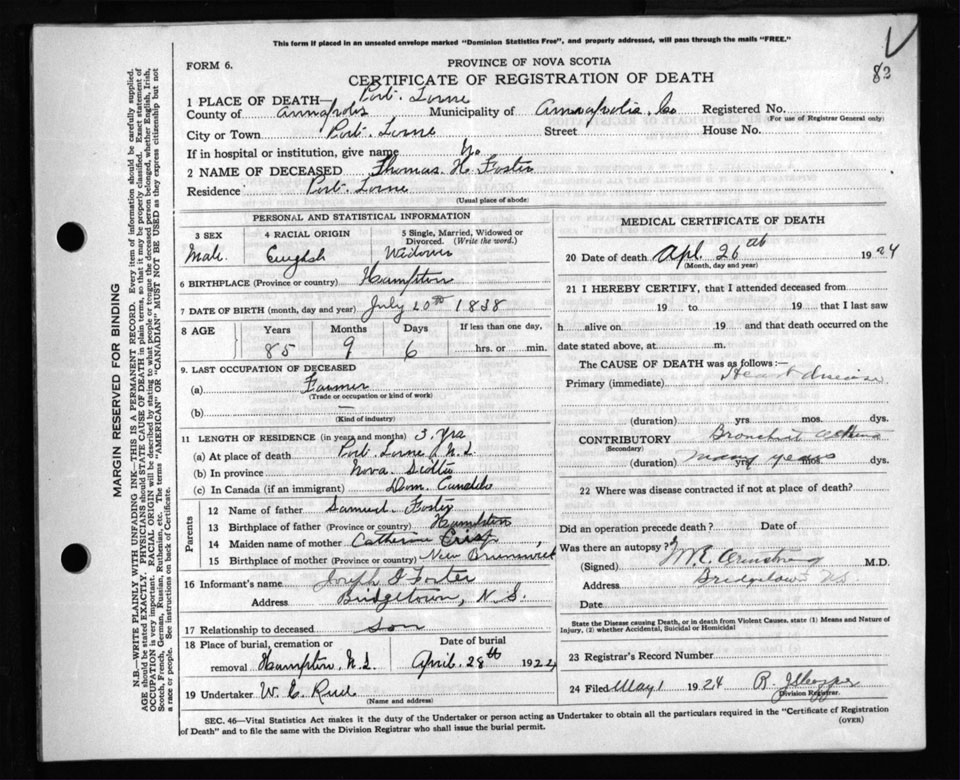 This form if placed in an unsealed envelope marked "Dominion Statistics Free", and properly addressed, will pass through the mails "FREE."
FORM 6.
PROVINCE OF NOVA SCOTIA
83
CERTIFICATE OF REGISTRATION OF DEATH
1 PLACE OF DEATH— Port. Lorne
County of Annapolis Municipality of Annapolis. Co Registered No.
(For use of Registrar General only)
City or Town Port. Lorne Street House No.
If in hospital or institution, give name No
2 NAME OF DECEASED Thomas. H. Foster
Residence Port. Lorne
(Usual place of abode)
PERSONAL AND STATISTICAL INFORMATION
3 SEX 4 RACIAL ORIGIN 5 Single, Married, Widowed or Divorced. (Write the word.)
Male. English Widower
6 BIRTHPLACE (Province or country) Hampton
7 DATE OF BIRTH (month, day and year) July 20th 1838
8 AGE Years Months Days If less than one day,
85 9 6 hrs. or min.
9. LAST OCCUPATION OF DECEASED
(a) Farmer
(Trade or occupation or kind of work)
(b) —
(Kind of industry)
11 LENGTH OF RESIDENCE (in years and months) 3. yrs
(a) At place of death Port. Lorne, N.S.
(b) In province Nova. Scotia
(c) In Canada (if an immigrant) Dom. Canada
Parents
12 Name of father Samuel. Foster
13 Birthplace of father (Province or country) Hampton
14 Maiden name of mother Catherine Crisp
15 Birthplace of mother (Province or country) New Brunswick
16 Informant's name Joseph I Foster
Address Bridgetown, N.S.
17 Relationship to deceased Son
18 Place of burial, cremation or removal Hampton. N.S. Date of burial April. 28th 1924
19 Undertaker W. C. Rice
(Name and address)
MEDICAL CERTIFICATE OF DEATH
20 Date of death Apl. 26th 1924
(Month, day and year)
21 I HEREBY CERTIFY, that I attended deceased from
19 to 19 that I last saw
h alive on 19 and that death occurred on the
date stated above, at m.
The CAUSE OF DEATH was as follows:
Primary (immediate) Heart disease
(duration) yrs. mos. dys.
CONTRIBUTORY Bronchial Asthma
(Secondary)
(duration) many years yrs mos. dys.
22 Where was disease contracted if not at place of death?
Did an operation precede death? Date of
Was there an autopsy?
(Signed) M.E. Armstrong M.D.
Address Bridgetown NS
Date
State the Disease causing Death, or in death from Violent Causes, state (1) Means and Nature of Injury, (2) whether Accidental, Suicidal or Homicidal
23 Registrar's Record Number
24 Filed May 1 1924 R.
Division Registrar.
SEC. 46—Vital Statistics Act makes it the duty of the Undertaker or person acting as Undertaker to obtain all the particulars required in the "Certificate of Registration
of Death" and to file the same with the Division Registrar who shall issue the burial permit.
(OVER)
MARGIN RESERVED FOR BINDING
N.B.—WRITE PLAINLY WITH UNFADING INK—THIS IS A PERMANENT RECORD. Every item of information should be carefully supplied.
AGE should be stated EXACTLY. PHYSICIANS should STATE CAUSE OF DEATH in plain terms, so that it may be properly classified. Exact statement of
OCCUPATION is very important. RACIAL ORIGIN will be described by stating to what people or tongue the deceased person belonged, whether English, Irish,
Scotch, French, German, Russian, Ruthenian, etc. The terms "AMERICAN" OR "CANADIAN" MUST NOT BE USED as they express citizenship but not
a race or people. See instructions on back of Certificate.